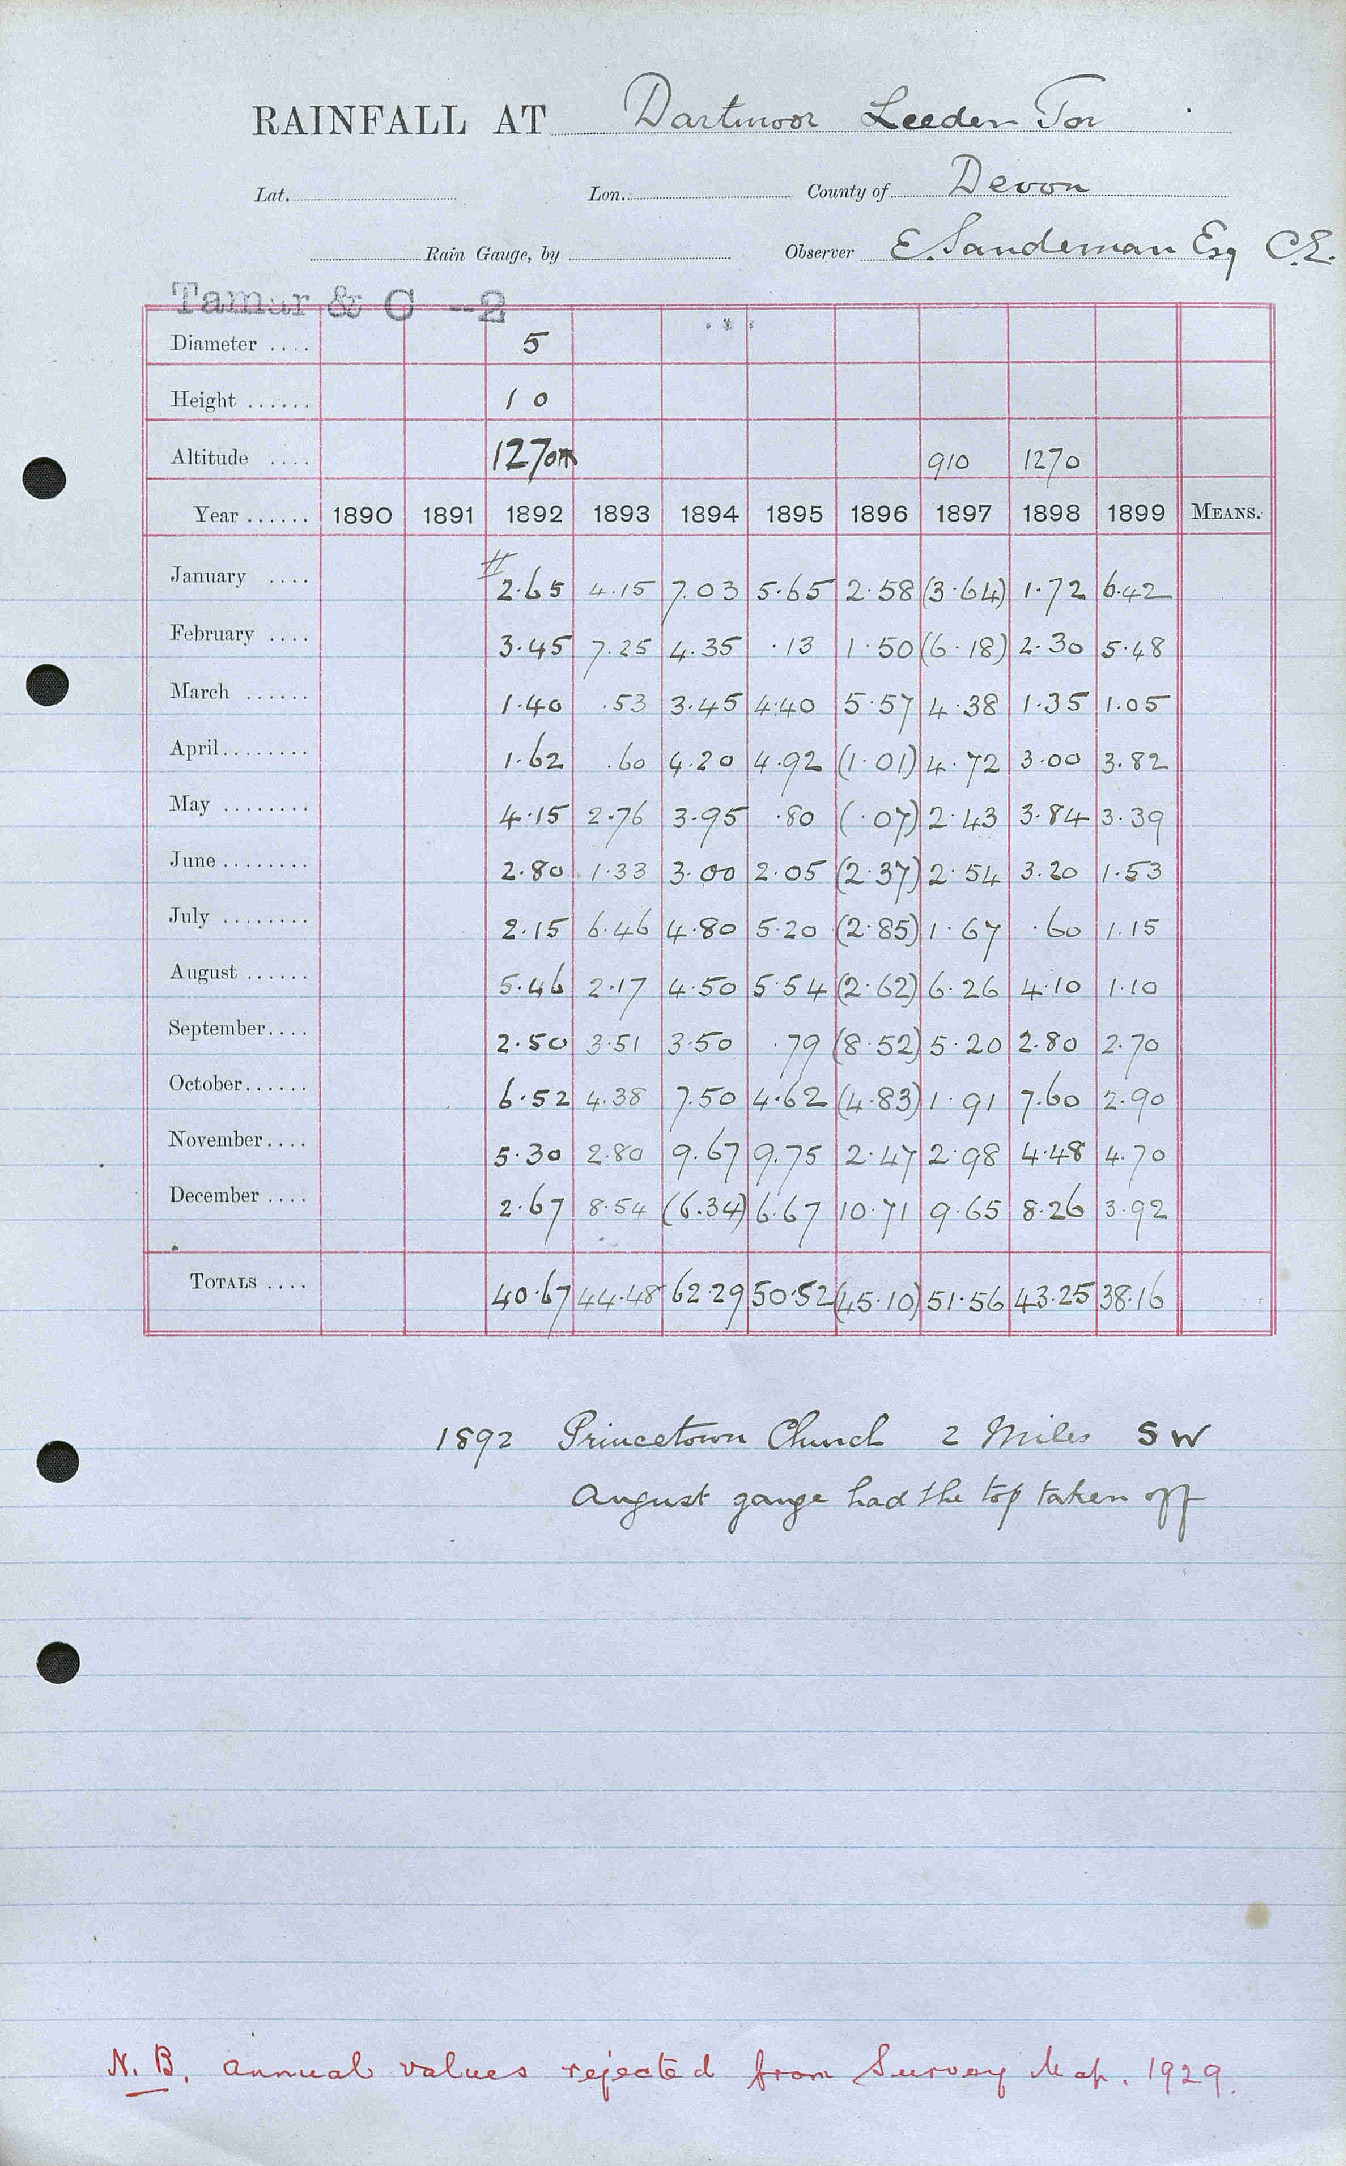 RAINFALL AT Dartmoor Leeden Tor
Lat. Lon. County of Devon
Rain Gauge, by Observer E. Sandeman Esq C.E.
Tamar & C --2
Diameter .... 5
Height ...... 1 0
Altitude .... 1270 910 1270
Year ...... 1890 1891 1892 1893 1894 1895 1896 1897 1898 1899 MEANS.
January .... # 2.65 4.15 7.03 5.65 2.58 (3.64) 1.72 6.42
February .... 3.45 7.25 4.35 .13 1.50 (6.18) 2.30 5.48
March ...... 1.40 .53 3.45 4.40 5.57 4.38 1.35 1.05
April........ 1.62 .60 4.20 4.92 (1.01) 4.72 3.00 3.82
May ........ 4.15 2.76 3.95 .80 (.07) 2.43 3.84 3.39
June ........ 2.80 1.33 3.00 2.05 (2.37) 2.54 3.20 1.53
July ........ 2.15 6.46 4.80 5.20 (2.85) 1.67 .60 1.15
August ...... 5.46 2.17 4.50 5.54 (2.62) 6.26 4.10 1.10
September.... 2.50 3.51 3.50 .79 (8.52) 5.20 2.80 2.70
October...... 6.52 4.38 7.50 4.62 (4.83) 1.91 7.60 2.90
November.... 5.30 2.80 9.67 9.75 2.47 2.98 4.48 4.70
December .... 2.67 8.54 (6.34) 6.67 10.71 9.65 8.26 3.92
TOTALS .... 40.67 44.48 62.29 50.52 (45.10) 51.56 43.25 38.16
1892 Princetown Church 2 Miles SW
August gauge had the top taken off
N.B. annual values rejected from Survey Map. 1929.